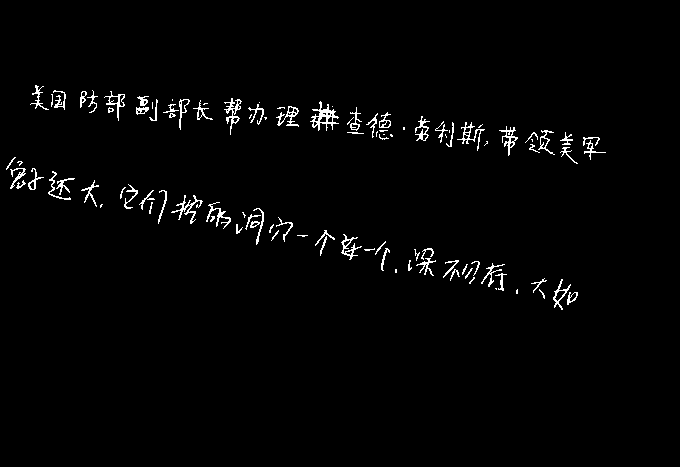 美国防部副部长帮办理查德·劳利斯,带领美军
还大,它们挖的洞穴一个连一个,深不,大如